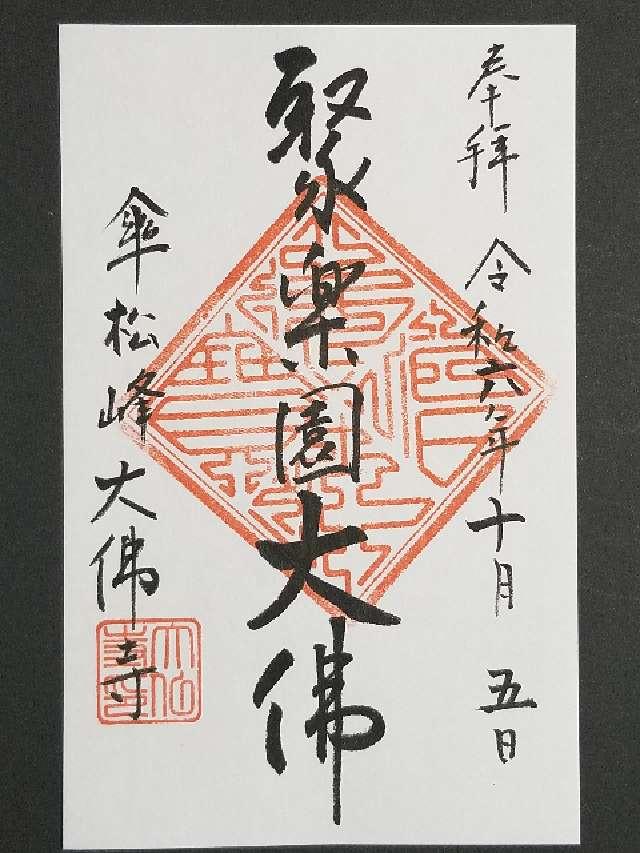 奉拝 令和六年十月五日
聚楽園大佛
傘松峰大佛寺